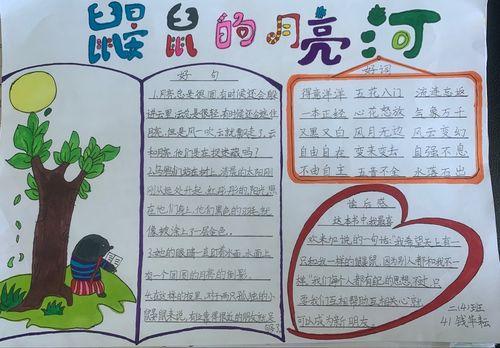 鼹鼠的月亮河
好句
1.月亮总是很圆,有时候还会躲
进云里,云总是很轻,有时候还会遮住
月亮,但是风一吹云就散走了,云
和月亮,他们是在捉迷藏吗?
2.鸟儿们站在树上,清晨的太阳刚
刚从地处升起,红彤彤的阳光洒
在他们身上,他们黑色的羽毛就
像被涂上了一层金色。
3.她的眼睛一直盯着水面,水面上
有一个圆圆的月亮的倒影。
好词
得意洋洋 五花八门 流连忘返
一本正经 心花怒放 气象万千
又黑又白 风月无边 风云变幻
自由自在 变来变去 自强不息
不由自主 五音不全 水落石出
读后感
这本书中我最喜
欢米加说的一句话:"我希望天上有一
只和我一样的鼹鼠,因为别人都和我不一
样"我们每个人都有自己的思想,不过,只
要我们互相帮助互相关心,就
可以成为新朋友。
二.(4)班
41 钱华耘